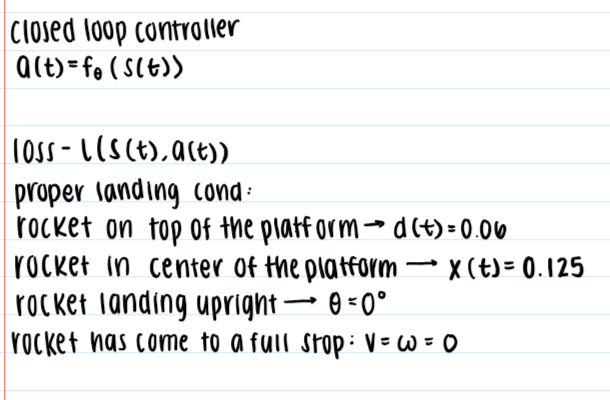 closed loop controller
a(t)=fθ(s(t))
loss - L(s(t),a(t))
proper landing cond:
rocket on top of the platform → d(t)=0.06
rocket in center of the platform → x(t)=0.125
rocket landing upright → θ=0°
rocket has come to a full stop: v=ω=0